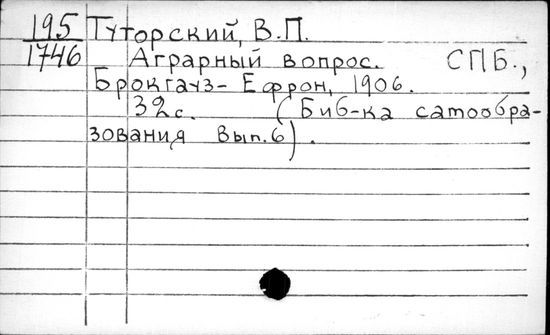 195 Туторский, В.П.
1746 Аграрный вопрос. СПБ.,
Брокгауз-Ефрон, 1906.
32с. (Биб-ка самообра-
зования Вып.6).